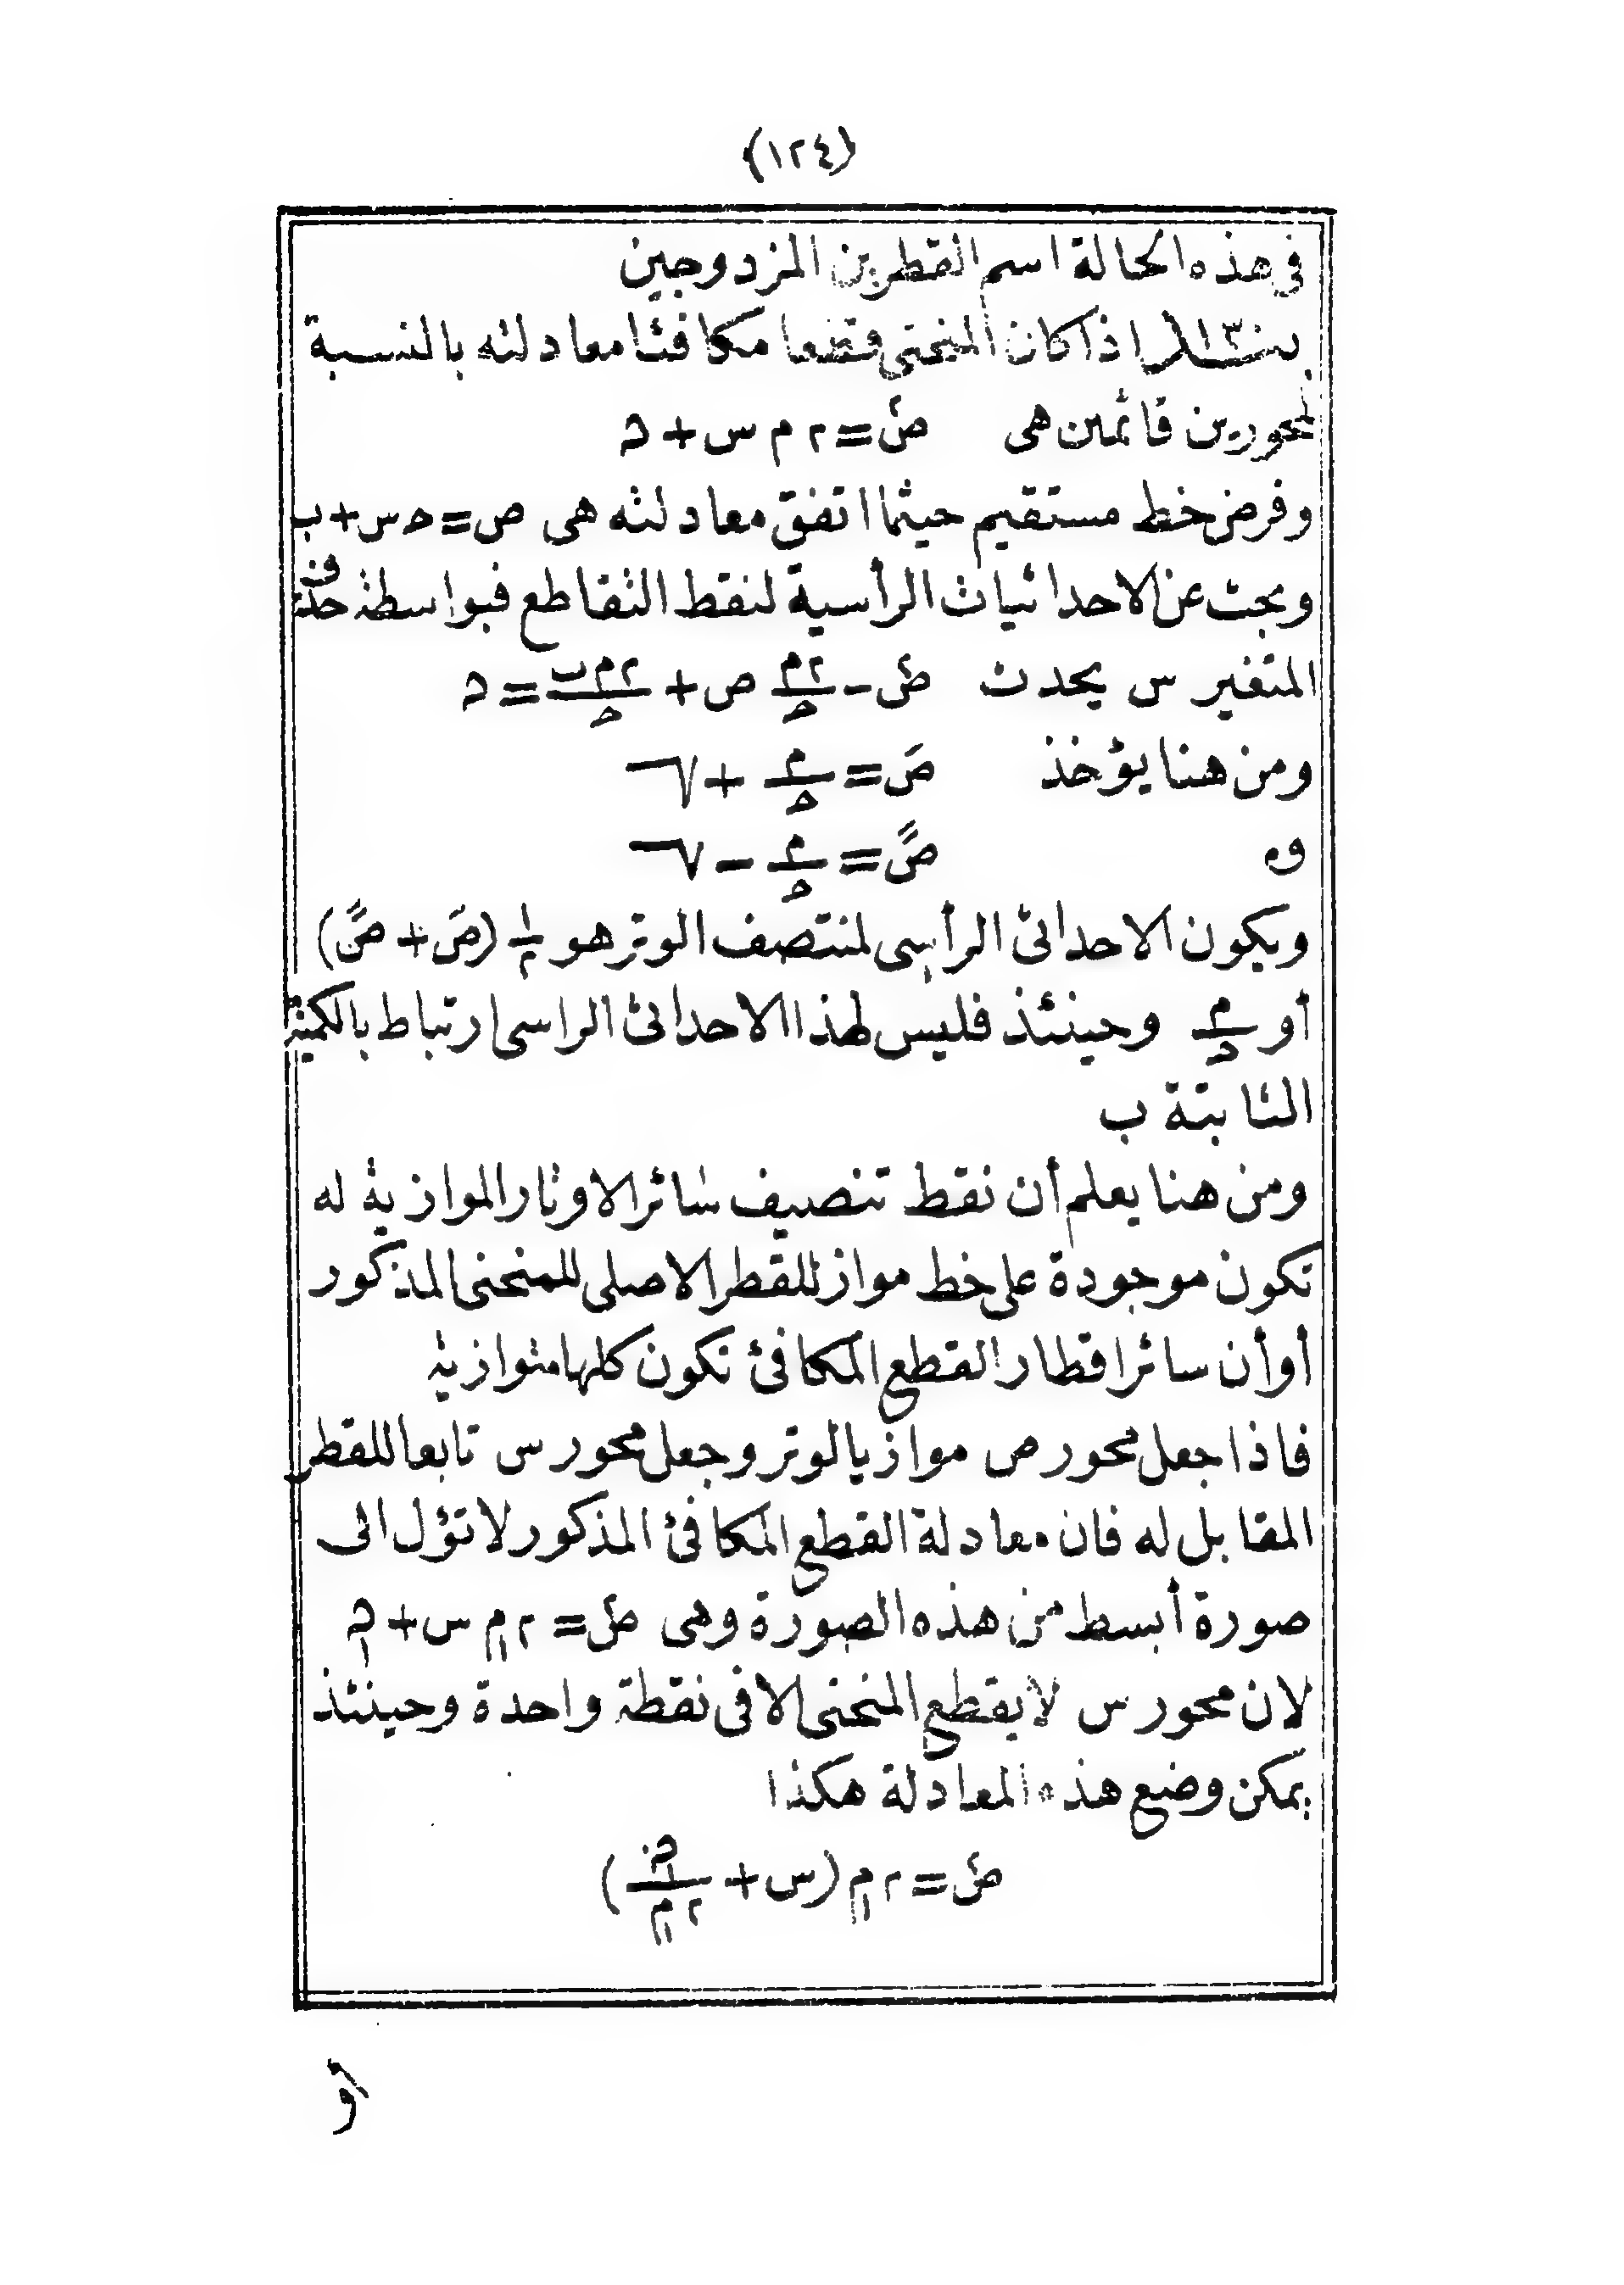 (١٢٤)
في هذه الحالة اسم القطرين المزدوجين
اذا كان المنحنى قطعا مكافئا معادلته بالنسبة
لمحورين قائمين هى ص٢ = ٢ م س + ح
وفرض خط مستقيم حيثما اتفق معادلته هى ص = ح س + ب
وبحث عن الاحداثيات الرأسية لنقط التقاطع فبواسطة حذف
المتغير س يحدث ص٢ - ٢م/ح ص + ٢م ب/ح = ح
ومن هنا يؤخذ صَ = م/ح + √
و صً = م/ح - √
ويكون الاحداثى الرأسى لمنتصف الوتر هو ١/٢ (صَ + صً)
أو م/ح وحينئذ فليس لهذا الاحداثى الراسى ارتباط بالكمية
الثابتة ب
ومن هنا يعلم أن نقط تنصيف سائر الاوتار الموازية له
تكون موجودة على خط مواز للقطر الاصلى للمنحنى المذكور
أو أن سائر اقطار القطع المكافئ تكون كلها متوازية
فاذا جعل محور ص موازيا لوتر وجعل محور س تابعا للقطر
المقابل له فان معادلة القطع المكافئ المذكور لا تؤل الى
صورة أبسط من هذه الصورة وهى ص٢ = ٢ م س + ح
لان محور س لا يقطع المنحنى الا فى نقطة واحدة وحينئذ
يمكن وضع هذه المعادلة هكذا
ص٢ = ٢ م (س + ح/٢م)
أو